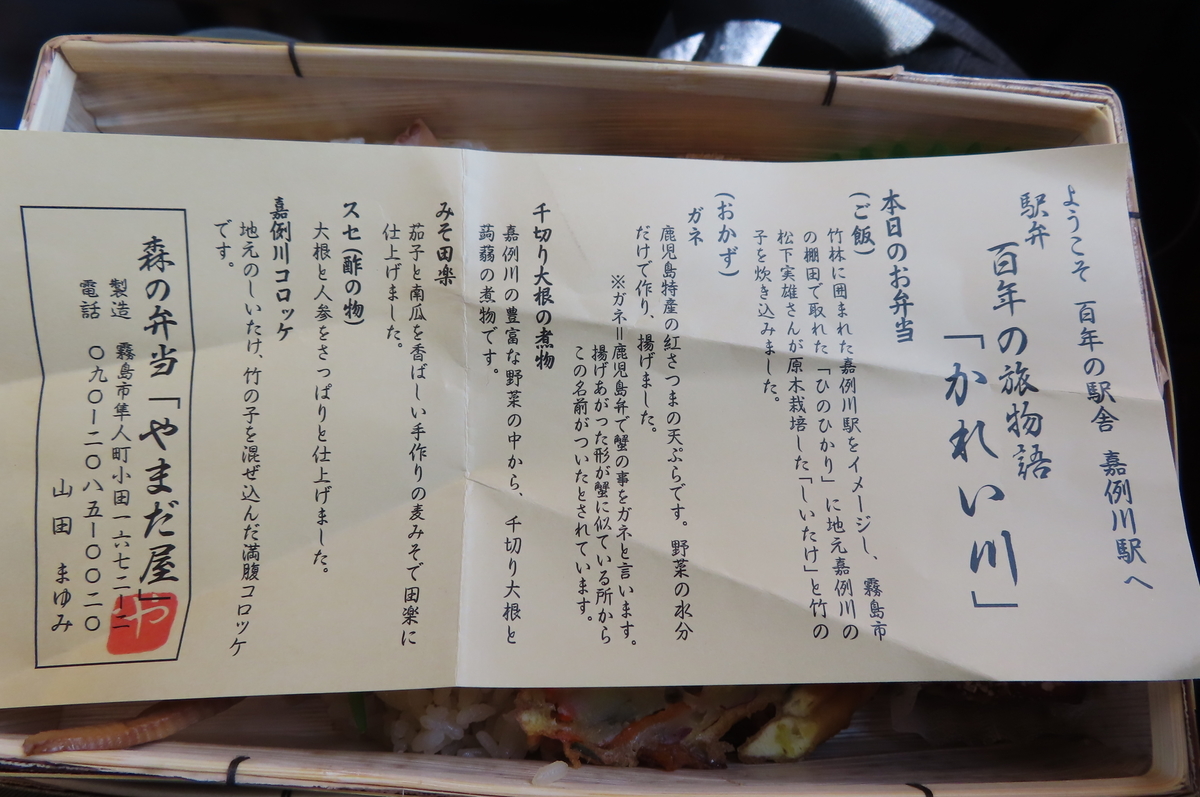 ようこそ 百年の駅舎 嘉例川駅へ
駅弁
百年の旅物語
「かれい川」
本日のお弁当
(ご飯)
竹林に囲まれた嘉例川駅をイメージし、霧島市
の棚田で取れた「ひのひかり」に地元嘉例川の
松下実雄さんが原木栽培した「しいたけ」と竹の
子を炊き込みました。
(おかず)
ガネ
鹿児島特産の紅さつまの天ぷらです。野菜の水分
だけで作り、揚げました。
※ガネ=鹿児島弁で蟹の事をガネと言います。
揚げあがった形が蟹に似ている所から
この名前がついたとされています。
千切り大根の煮物
嘉例川の豊富な野菜の中から、千切り大根と
蒟蒻の煮物です。
みそ田楽
茄子と南瓜を香ばしい手作りの麦みそで田楽に
仕上げました。
スセ(酢の物)
大根と人参をさっぱりと仕上げました。
嘉例川コロッケ
地元のしいたけ、竹の子を混ぜ込んだ満腹コロッケ
です。
森の弁当「やまだ屋」
や
製造 霧島市隼人町小田一六七二ー二
電話 〇九〇ー二〇八五ー〇〇二〇
山田 まゆみ